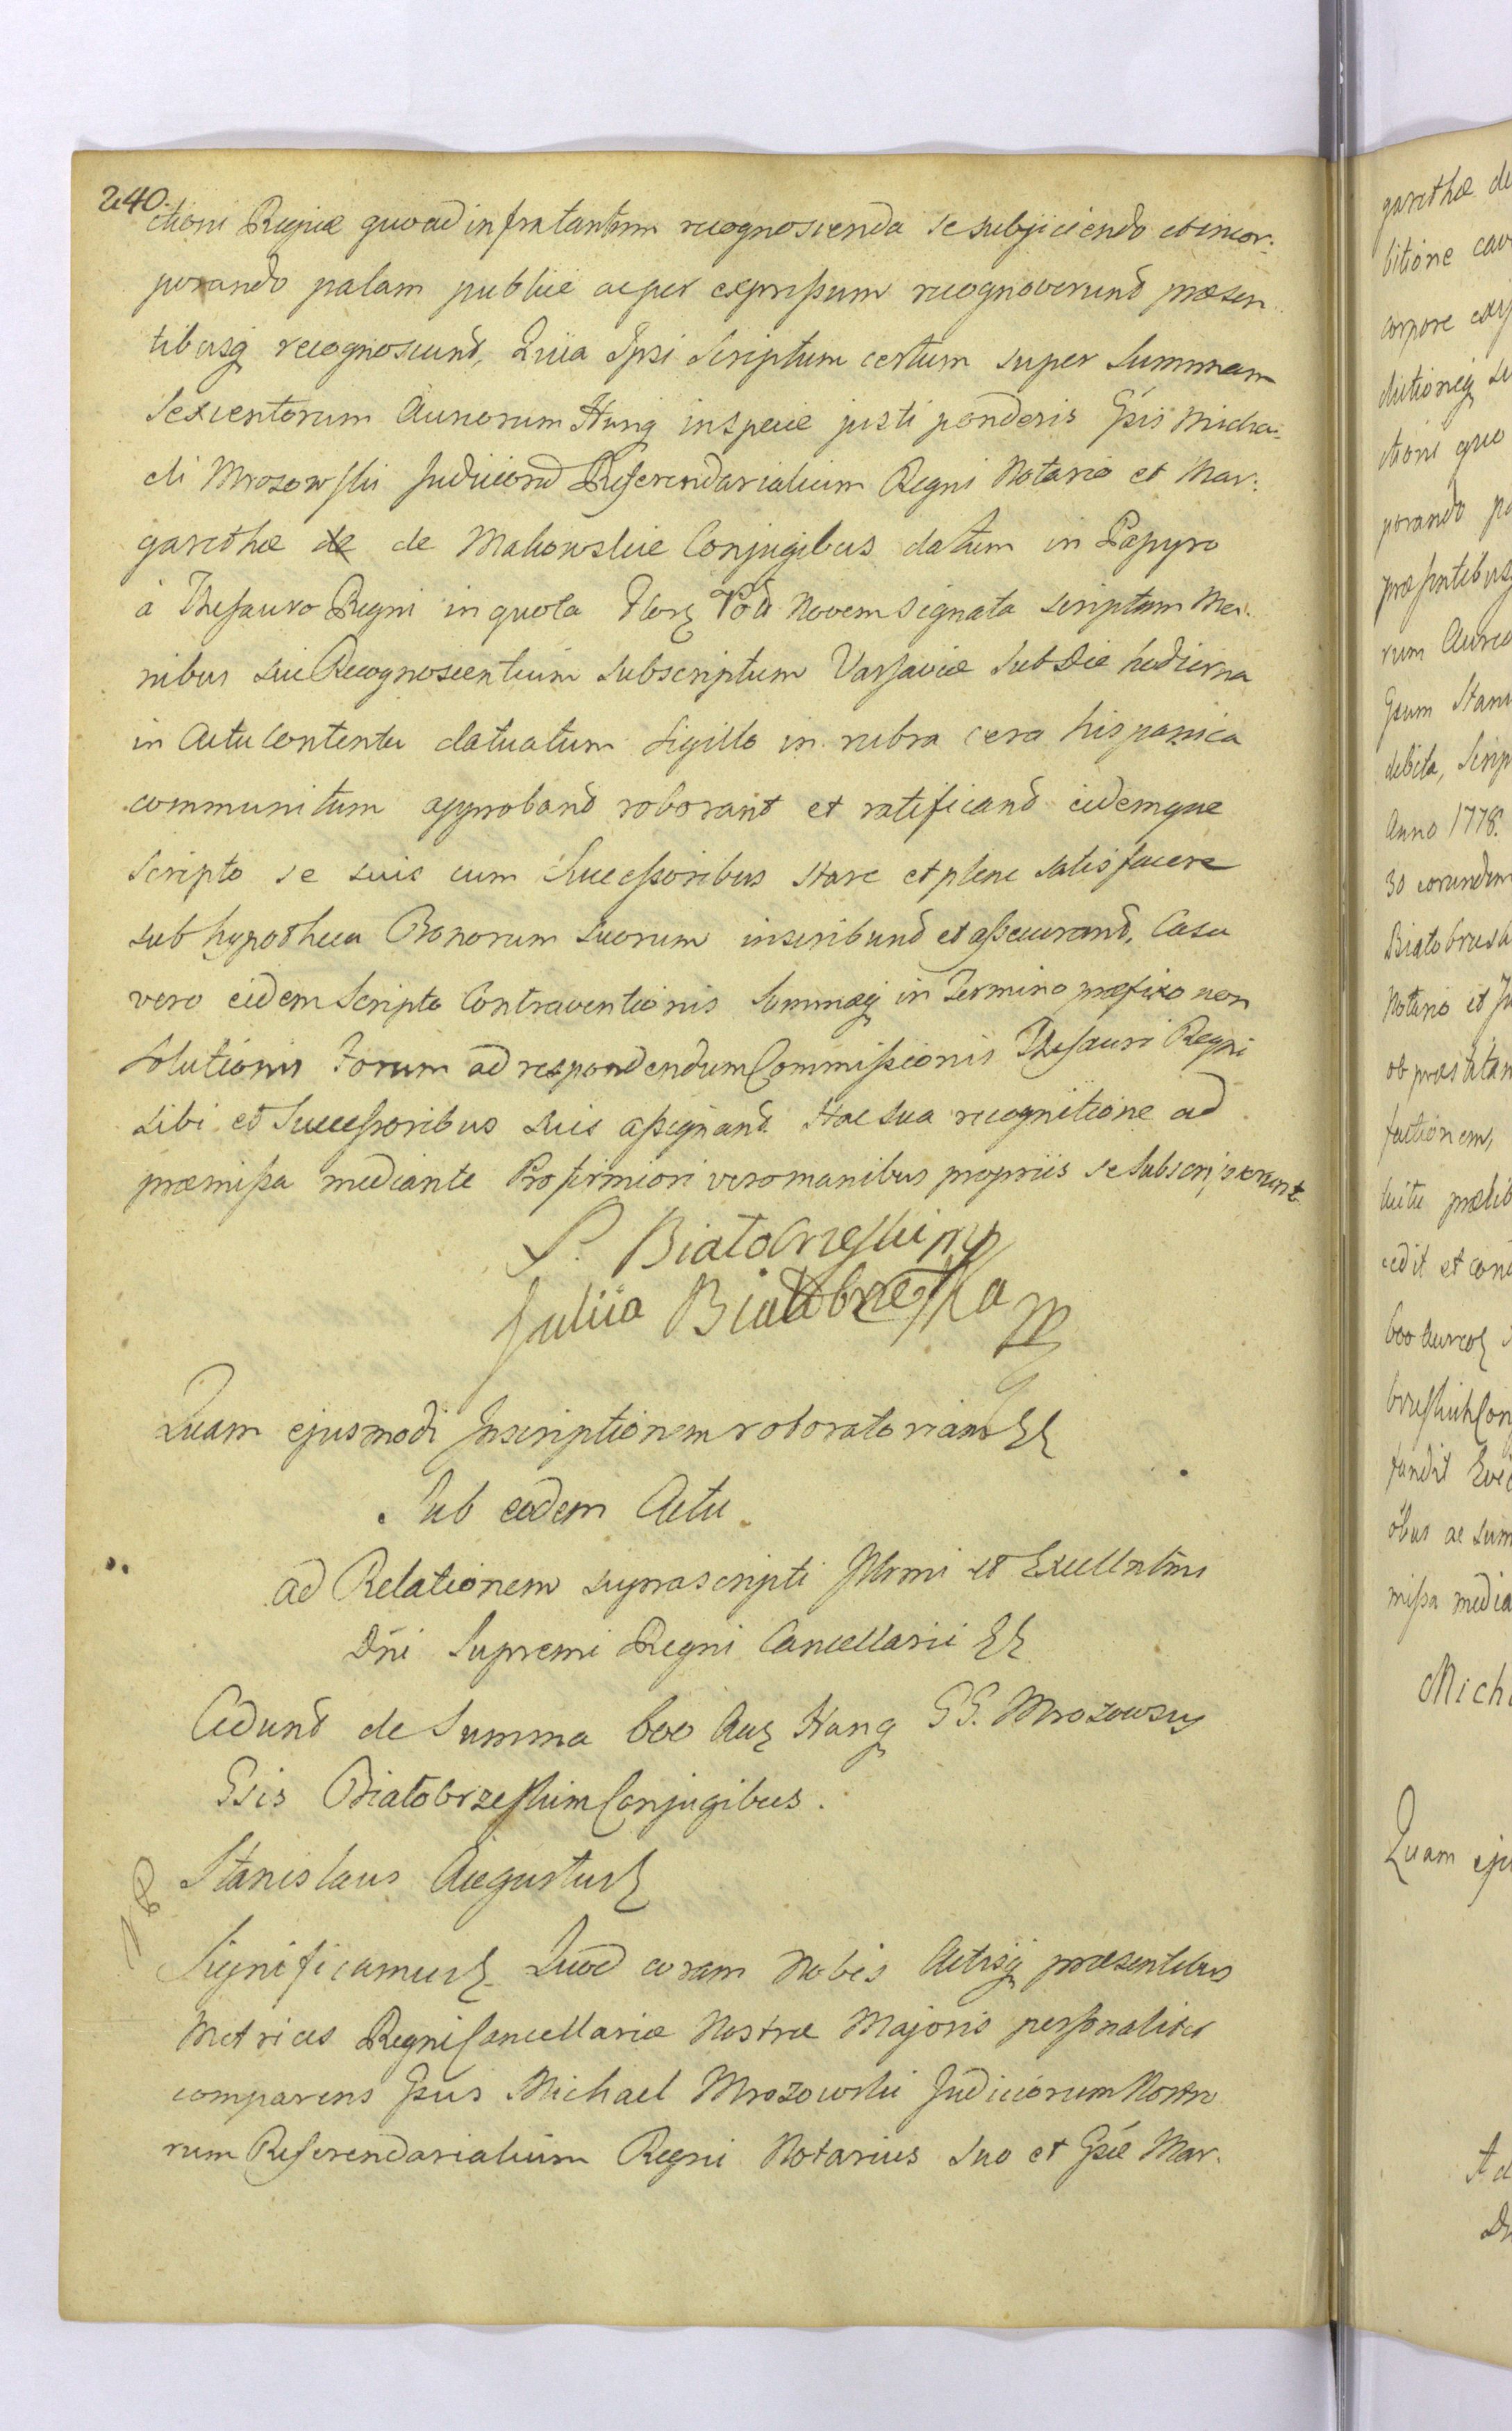 240.
ctioni Regiæ quoad infra tantum recognoscenda se subjiciendo et incor:
porando palam publice ac per expressum recognoverunt præsen
tibusq recognoscunt, Quia Ipsi Scriptum certum super Summam
Sexcentorum Aureorum Hung in specie justi ponderis Gsis Micha:
eli Mrozowski Judiciorū Referendarialium Regni Notario et Mar:
garethæ de Makowskie Conjugibus datum in Papyro
à Thesauro Regni in quota Flor Pol Novem signata scriptum Ma:
nibus sui Recognoscentium subscriptum Varsaviæ Sub Die hodierna
in Actu Contenta datuatum Sigillo in rubra cera hispanica
communitum approband roborant et ratificand eidemque
Scripto se suis cum Successoribus stare et plene satisfacere
sub hypotheca Bonorum suorum inscribund et assecurand, Casu
vero eidem Scripto Contraventionis Summæq in Termino præfixo non
Solutionis Forum ad respondendum Commissionis Thesauri Regni
sibi et Successoribus suis assignand Hac sua recognitione ad
præmissa mediante Pro firmiori vero manibus propriis se subscripserunt
P. Białobrzeski mp
Juliia Białobrzeska mp
Quam ejusmodi Inscriptionem roboratoriam
Sub eodem Actu
ad Relationem suprascripti Illrmi et Excellntmi
Dñi Supremi Regni Cancellarii
Cedunt de Summa 600 Aur Hung GG. Mrozowscy
Gsis Białobrzeskim Conjugibus.
Stanislaus Augustus
Significamus Quod coram Nobis Actisq præsentibus
Metrices Regni Cancellariæ Nostræ Majoris personaliter
comparens Gsus Michael Mrozowski Judiciorum Nostro
rum Referendarialium Regni Notarius suo et Gsæ Mar.
garethæ de
bitione cav
corpore
dictioniq su
ctioni quo
porando pa
præsentibusq
rum Aureo
Gsum Stani
debita, Scrip
Anno 1778.
30 eorundem
Białobrzesk
Notario et Ju
ob præstitan
factionem,
luitu prælib
cedit et cond
600 Aureor
brzeskich Con
fundit
ac sum
missa media
Mich
Quam eju
Ad